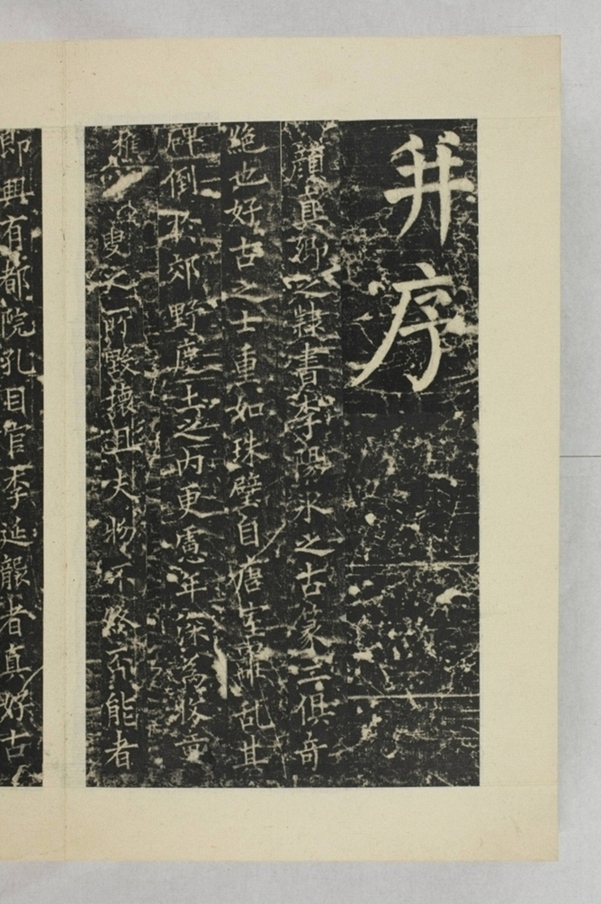 并序
顏真卿之隸書李陽冰之古篆二俱奇
絶也好古之士重如珠璧自唐室離亂其
碑倒於郊野塵土之内更慮年深為牧童
樵叟之所毀壞且夫物不終否能者
即興有都院孔目官李延襲者真好古